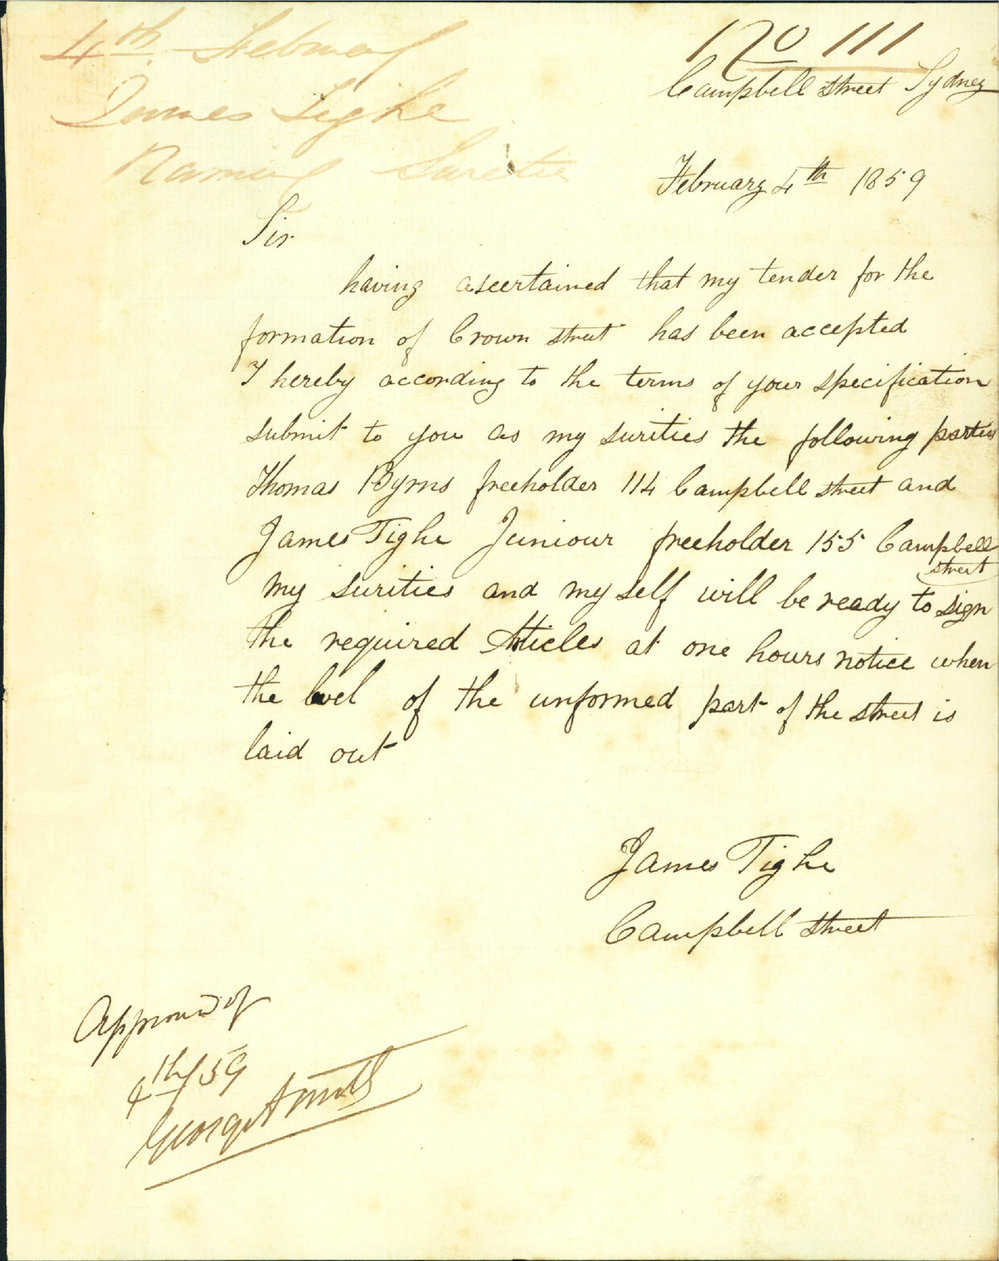 4th February
James Tighe
Naming Suretie
No 111
Campbell street Sydney
February 4th 1859
Sir
having ascertained that my tender for the
formation of Crown street has been accepted
I hereby according to the terms of your specification
submit to you as my surities the following parties
Thomas Byrns freeholder 114 Campbell street and
James Tighe Juniour freeholder 155 Campbell
street
my surities and my self will be ready to sign
the required Articles at one hours notice when
the level of the unformed part of the street is
laid out
James Tighe
Campbell street
Approved of
4th/59
George Smith